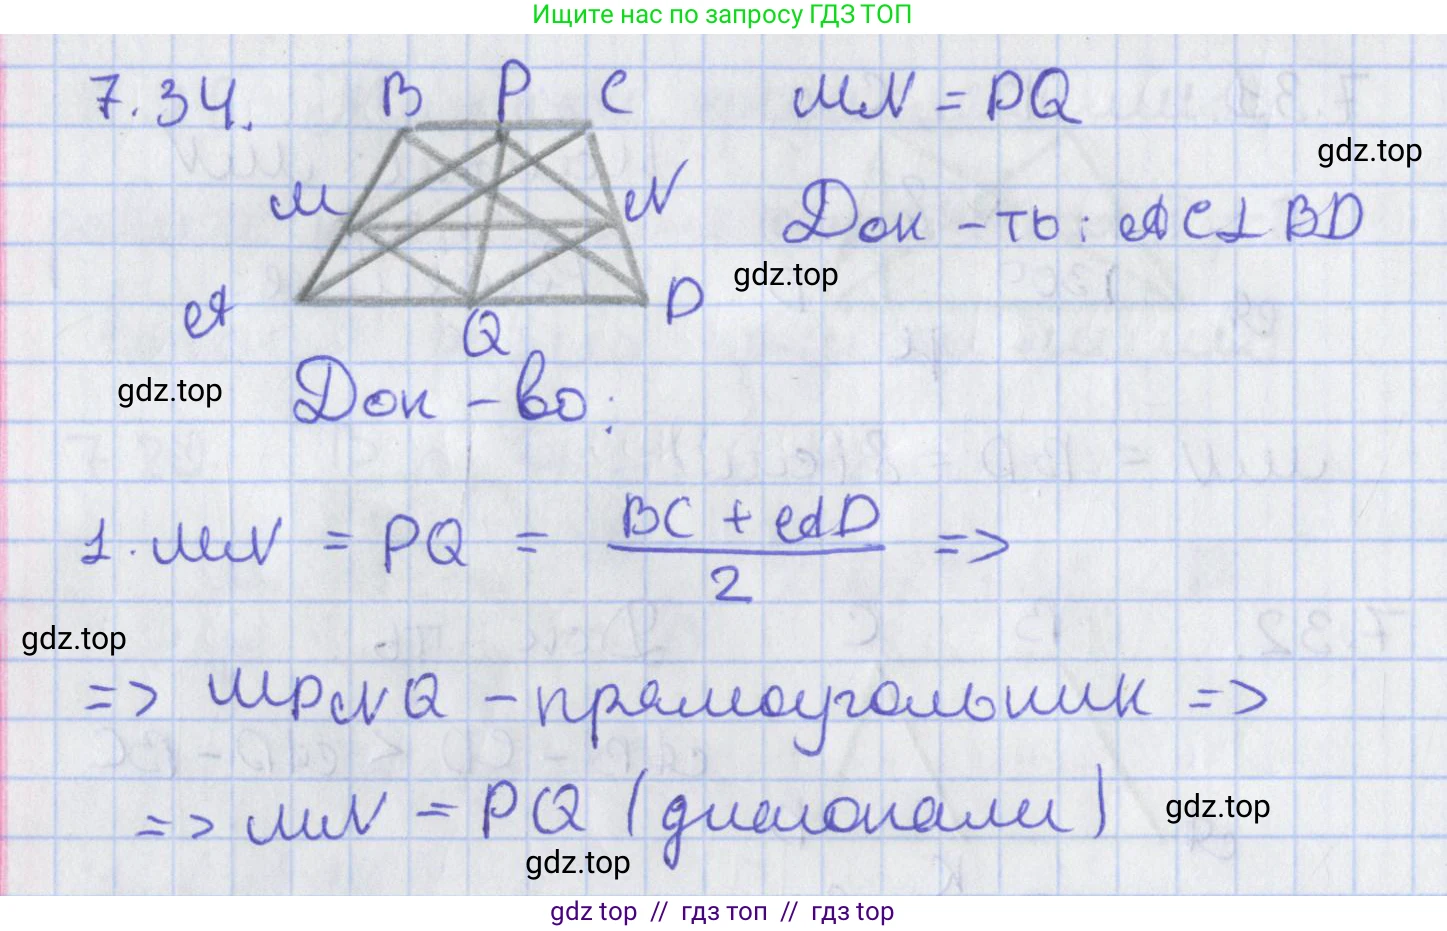 Ищите нас по запросу ГДЗ ТОП
7.34.
B P C
MN = PQ
gdz.top
M N
Док-ть: AC⊥BD
gdz.top
A Q D
gdz.top
Док-во:
1. MN = PQ = (BC + AD)/2 =>
gdz.top
=> MPNQ - прямоугольник =>
=> MN = PQ (диагонали)
gdz.top
gdz.top
gdz top // гдз топ // гдз top